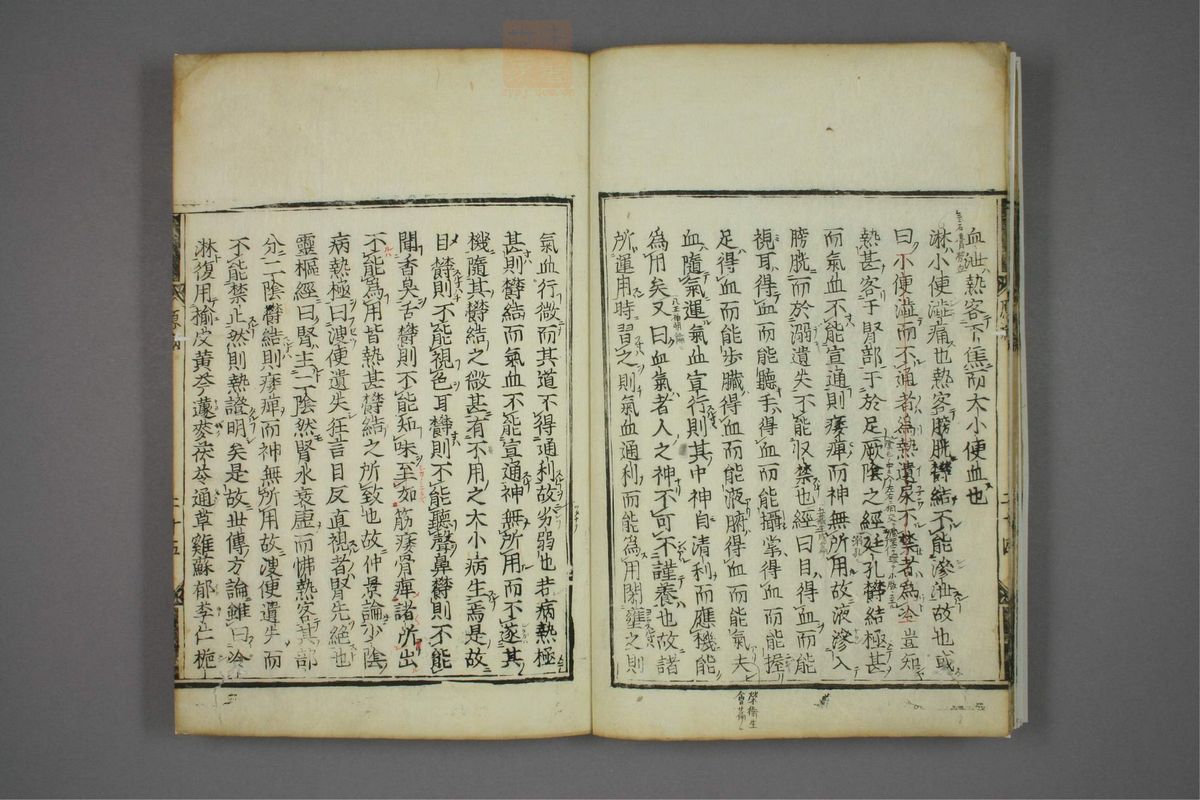 血泄熱客下焦而大小便血也
淋小便澁痛也熱客膀胱欝結不能滲泄故也或
曰小便澁而不通者為熱遺尿不禁者為冷豈知
熱甚客于腎部于於足厥陰之經廷孔欝結極甚
而氣血不能宣通則痿痺而神無所用故液滲入
膀胱而於溺遺失不能収禁也經曰目得血而能
視耳得血而能聽手得血而能攝掌得血而能握
足得血而能歩臓得血而能液腑得血而能氣夫
血隨氣運氣血宣行則其中神自清利而應機能
為用矣又曰血氣者人之神不可不謹養也故諸
所運用時習之則氣血通利而能為用閉壅之則
榮衛生
會篇
氣血行微而其道不得通利故劣弱也若病熱極
甚則欝結而氣血不能宣通神無所用而不遂其
機隨其欝結之微甚有不用之大小病生焉是故
目欝則不能視色耳欝則不能聽聲鼻欝則不能
聞香臭舌欝則不能知味至如筋痿骨痺諸所出
不能為用皆熱甚欝結之所致也故仲景論少陰
病熱極曰溲便遺失狂言目反直視者腎先絶也
靈樞經曰腎主二陰然腎水衰虚而怫熱客其部
分二陰欝結則痿痺而神無所用故溲便遺失而
不能禁止然則熱證明矣是故世傳方論雖曰冷
淋復用榆皮黄芩蘧麥茯苓通草雞蘇郁李仁梔